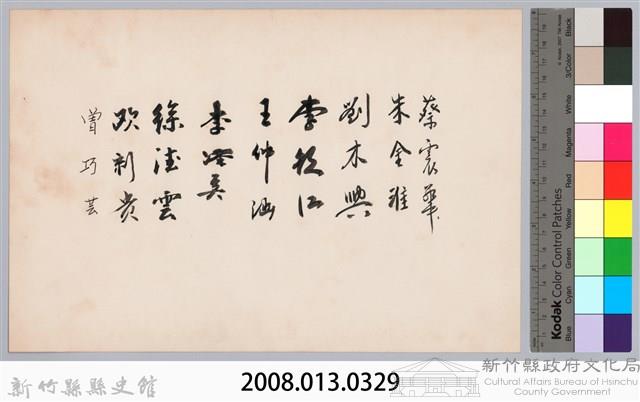 蔡震華
朱金雅
劉木興
李牧江
王仲
李
徐法雲
歐利貴
曾巧芸
Black
3/Color
White
Magenta
Red
Yellow
Green
Cyan
Blue
Kodak Color Control Patches
新竹縣縣史館
2008.013.0329
新竹縣政府文化局
Cultural Affairs Bureau of Hsinchu
County Government